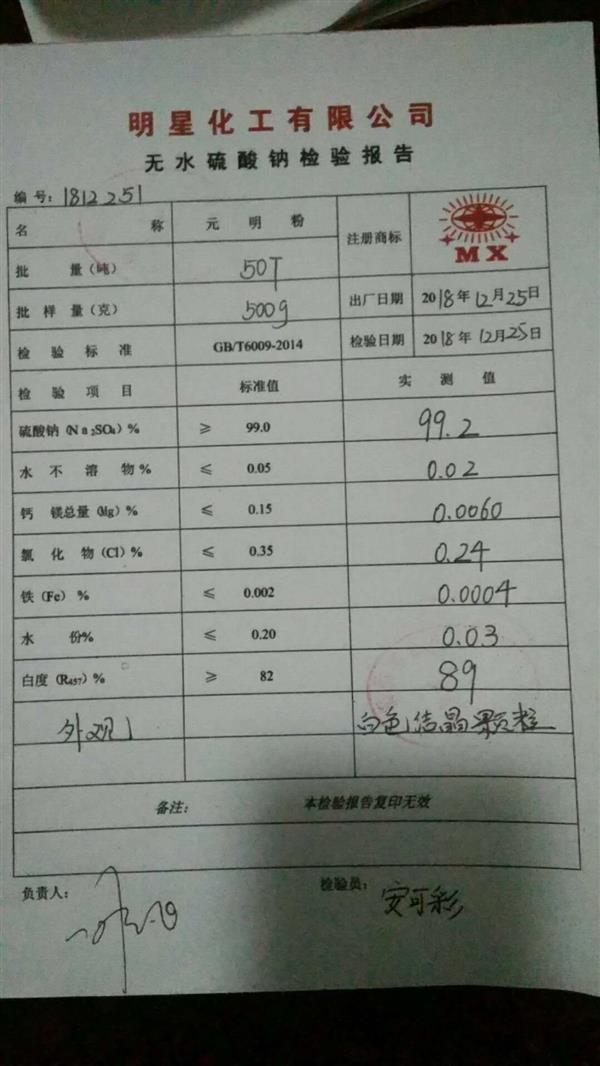 明星化工有限公司
无水硫酸钠检验报告
编号：1812251
名称 元明粉 注册商标 MX
批量（吨） 50T
批样量（克） 500g 出厂日期 2018年12月25日
检验标准 GB/T6009-2014 检验日期 2018年12月25日
检验项目 标准值 实测值
硫酸钠（Na₂SO₄）% ≥ 99.0 99.2
水不溶物% ≤ 0.05 0.02
钙镁总量（Mg）% ≤ 0.15 0.0060
氯化物（Cl）% ≤ 0.35 0.24
铁（Fe）% ≤ 0.002 0.0004
水份% ≤ 0.20 0.03
白度（R₄₅₇）% ≥ 82 89
外观 白色结晶颗粒
备注： 本检验报告复印无效
负责人： 检验员： 安可彩